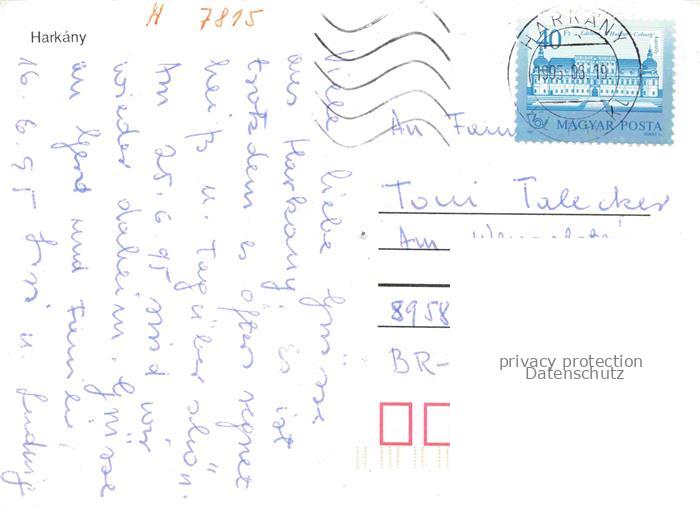 H 7815
Harkány
Viele liebe Grüsse
aus Harkany. Es ist
trotzdem es öfters regnet
heiß u. Tagsüber schön.
Am 25.6.95 sind wir
wieder daheim. Grüsse
an Gerd und Famili
16.6.95 u. Ludwig
HARKÁNY
1995.06.19
40 Ft
MAGYAR POSTA
An Fam
Toni Talecker
Am
8958
BR-
privacy protection
Datenschutz